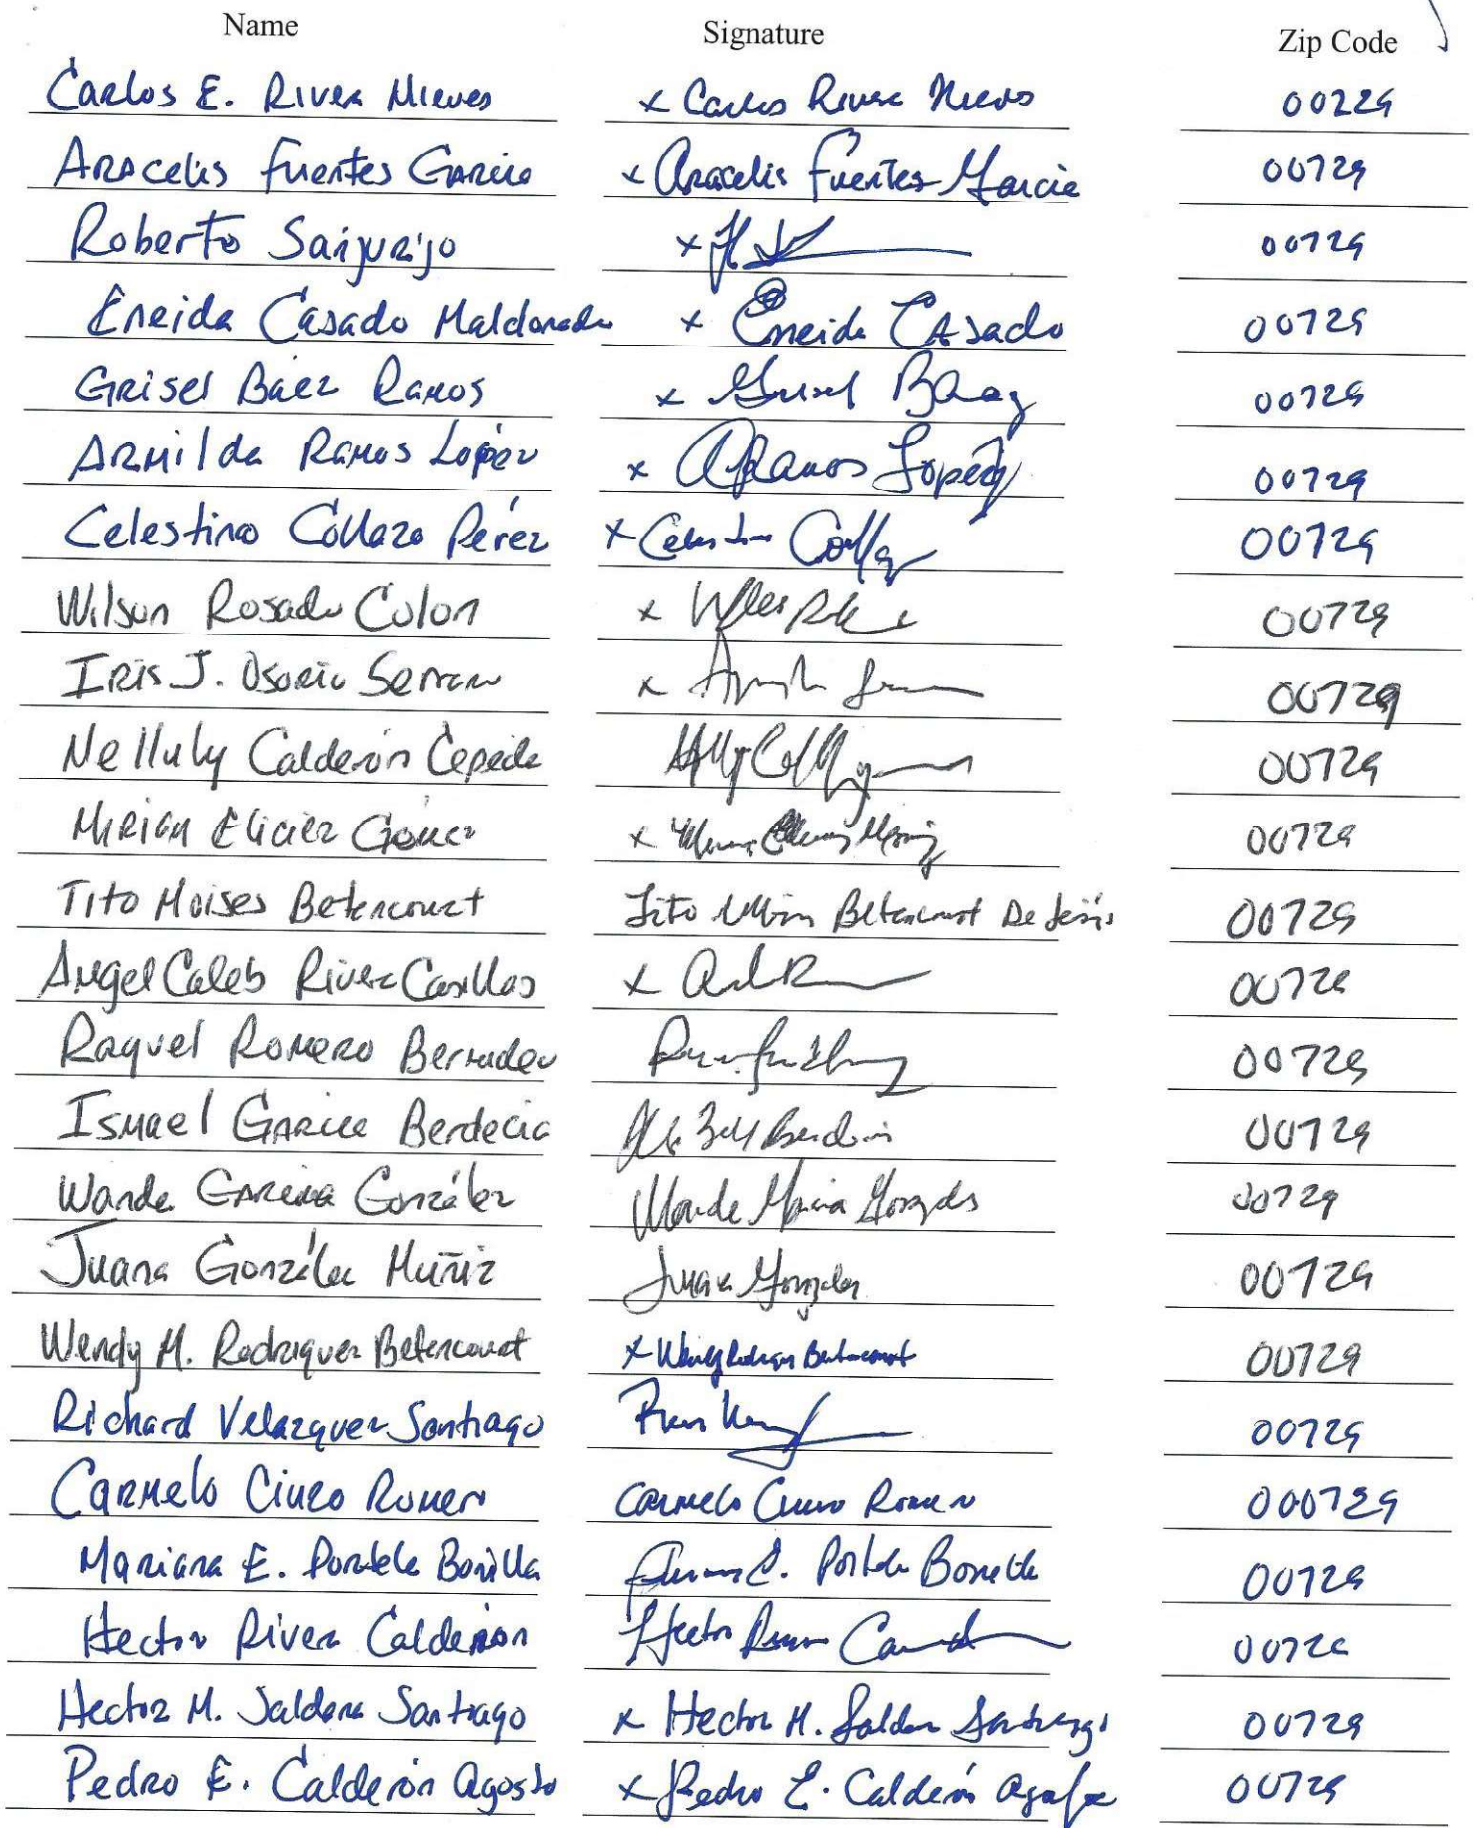 Name Signature Zip Code
Carlos E. Rivera Nieves x Carlos Rivera Nieves 00229
Aracelis Fuentes Garcia x Aracelis Fuentes Garcia 00729
Roberto Sanjurjo x 00729
Eneida Casado Maldonado x Eneida Casado 00729
Grisel Baez Ramos x Grisel Baez 00729
Armilda Ramos López x A Ramos López 00729
Celestino Collazo Pérez x Celestino Collazo 00729
Wilson Rosado Colon x 00729
Iris J. Osorio Serrano x 00729
Nelluly Calderón Cepeda 00729
Mirian Elicier Gómez x 00729
Tito Moises Betencourt Tito Betencourt De Jesús 00729
Angel Caleb Rivera Casillas x 00729
Raquel Romero Bermudez 00729
Ismael Garcia Berdecia 00729
Wanda Garcia González Wanda Garcia Gonzalez 00729
Juana González Muñiz Juana Gonzalez 00729
Wendy M. Rodriguez Betencourt x Wendy Rodriguez Betancourt 00729
Richard Velazquez Santiago 00729
Carmelo Ciuro Romero Carmelo Ciuro Romero 000729
Mariana E. Portela Bonilla E. Portela Bonilla 00729
Hector Rivera Calderon Hector Rivera 00729
Hector M. Saldana Santiago x Hector M. Saldana Santiago 00729
Pedro E. Calderón Agosto x Pedro E. Calderón Agosto 00729